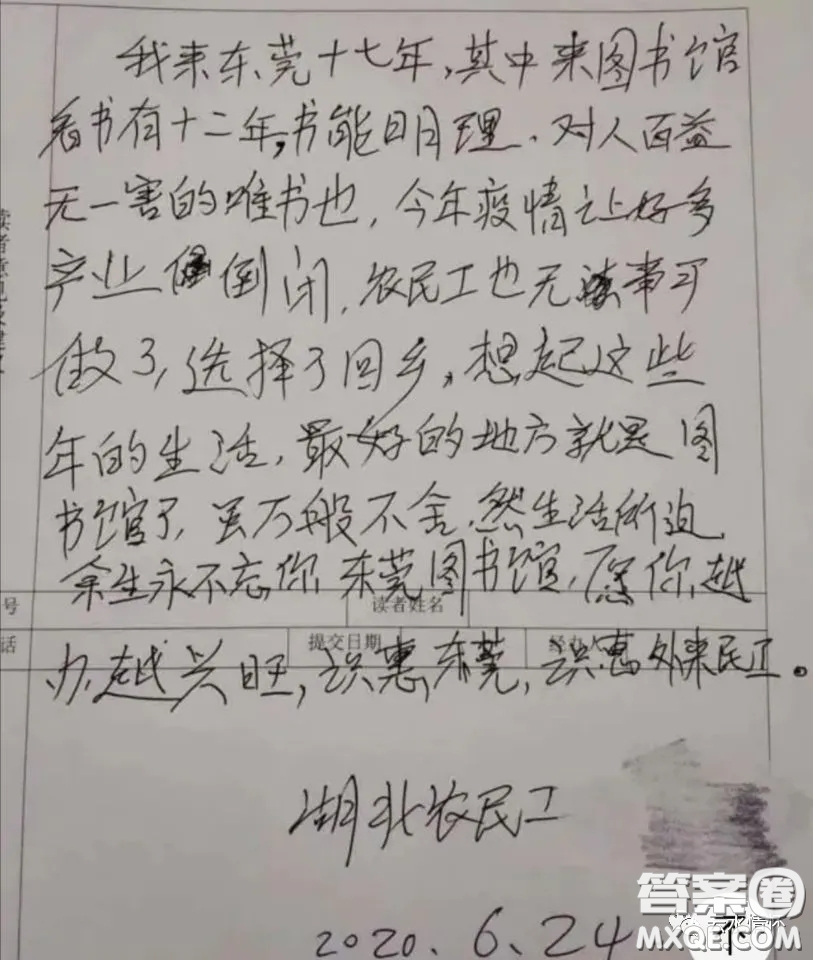 我来东莞十七年,其中来图书馆
看书有十二年,书能明理、对人百益
无一害的唯书也,今年疫情让好多
产业倒闭,农民工也无事可
做了,选择了回乡,想起这些
年的生活,最好的地方就是图
书馆了,虽万般不舍,然生活所迫,
余生永不忘你,东莞图书馆,愿你越
号 读者姓名
办越兴旺,识惠东莞,识惠外来民工。
话 提交日期 经办人
湖北农民工
2020.6.24
答案圈
MXQE.COM